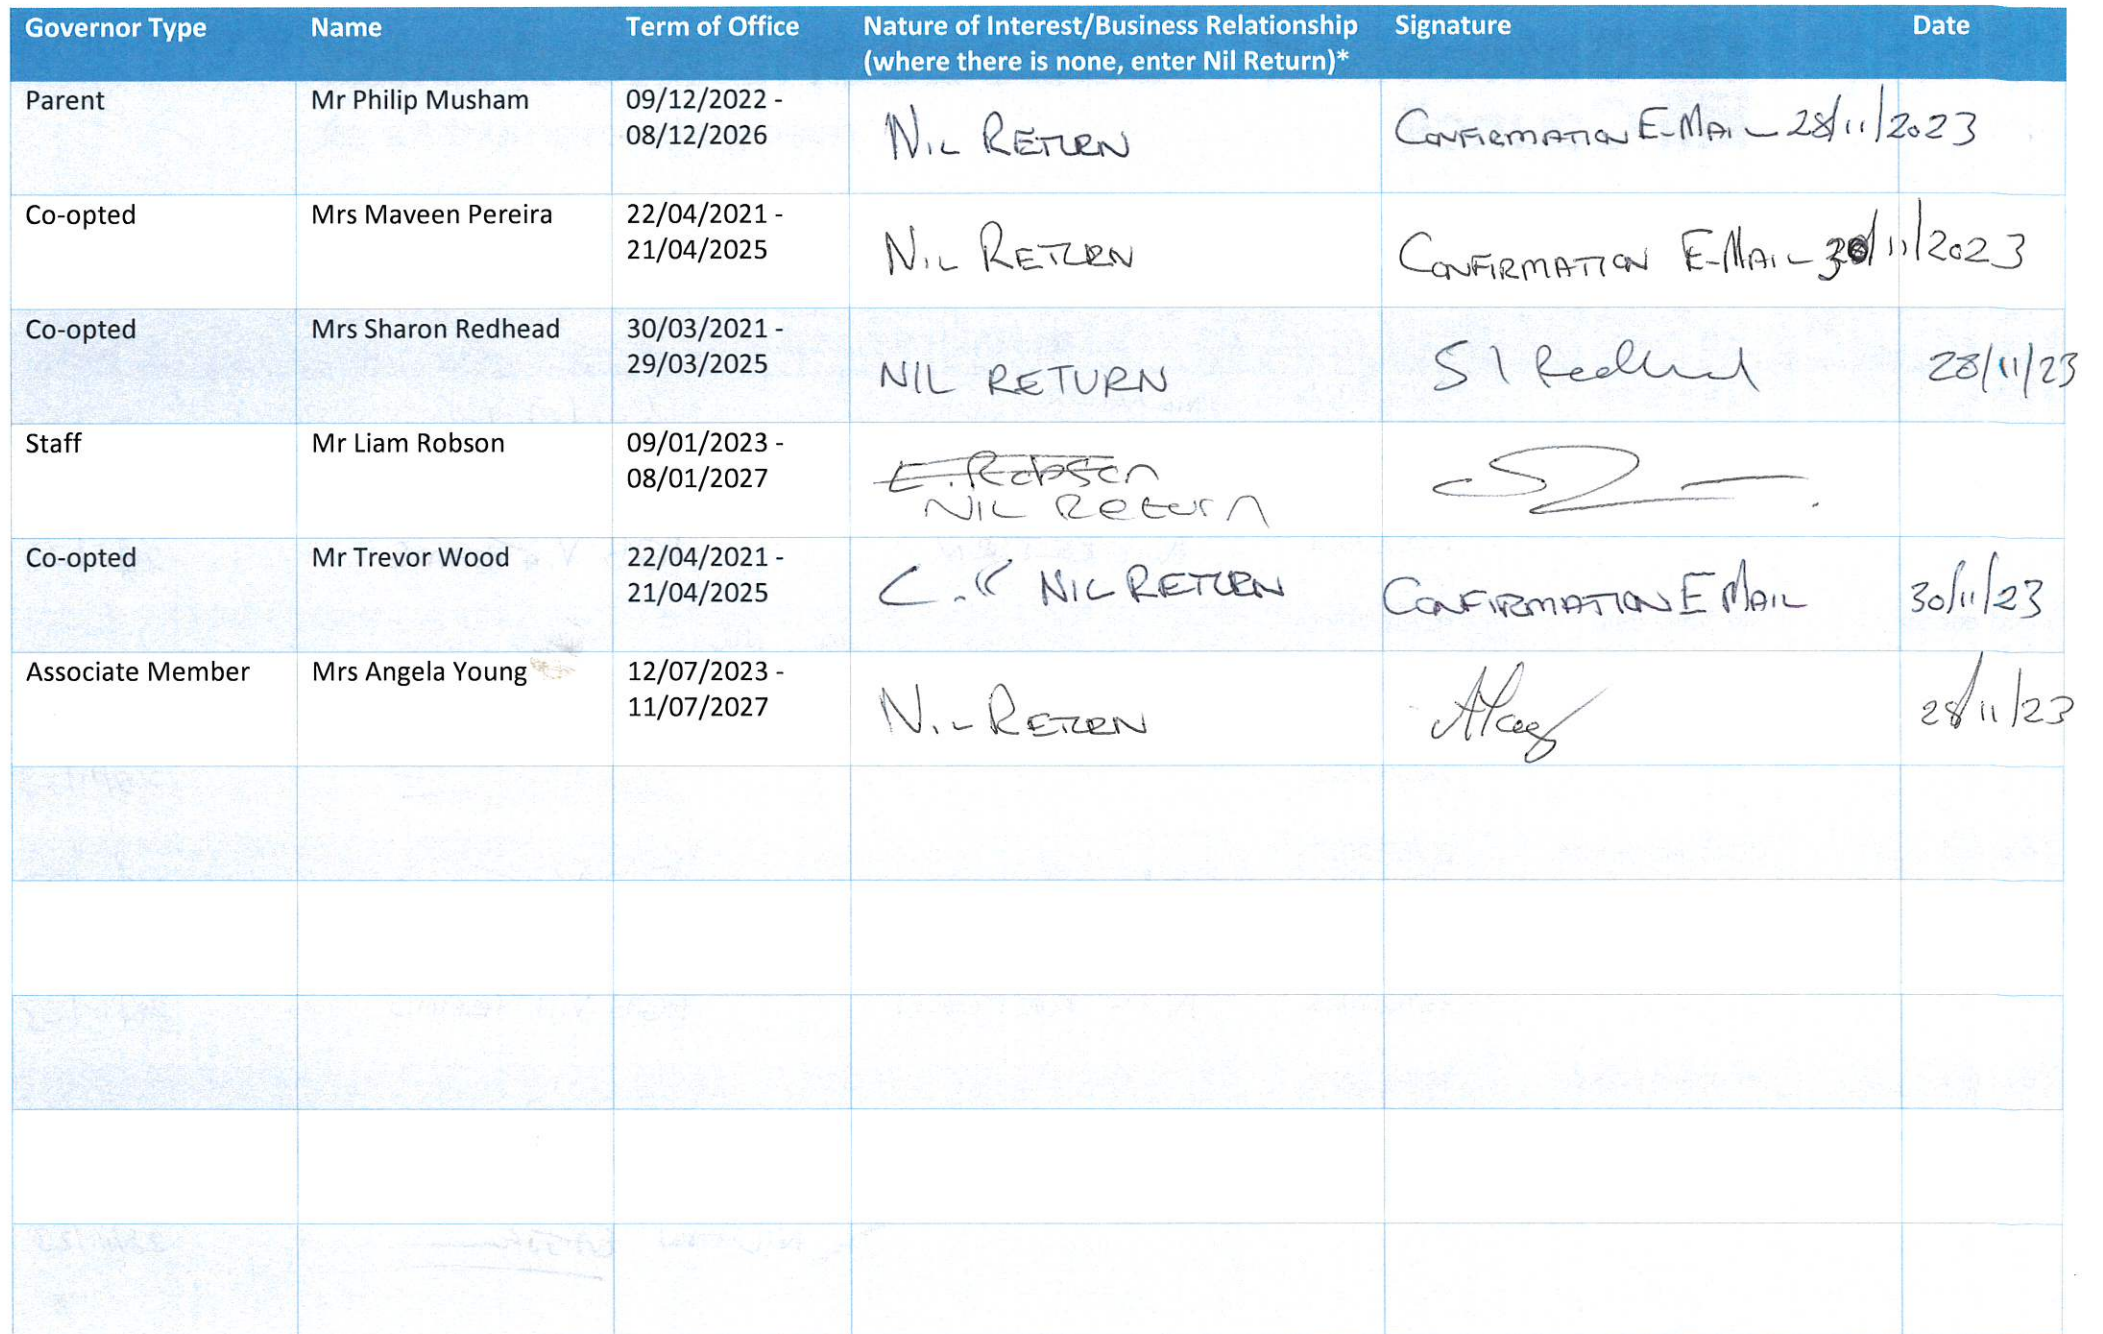 Governor Type Name Term of Office Nature of Interest/Business Relationship Signature Date
(where there is none, enter Nil Return)*
Parent Mr Philip Musham 09/12/2022 -
08/12/2026
NIL RETURN CONFIRMATION E-MAIL 28/11/2023
Co-opted Mrs Maveen Pereira 22/04/2021 -
21/04/2025
NIL RETURN CONFIRMATION E-MAIL 30/11/2023
Co-opted Mrs Sharon Redhead 30/03/2021 -
29/03/2025
NIL RETURN S J Redhead 28/11/23
Staff Mr Liam Robson 09/01/2023 -
08/01/2027
L. Robson
NIL Return
Co-opted Mr Trevor Wood 22/04/2021 -
21/04/2025
NIL RETURN CONFIRMATION E MAIL 30/11/23
Associate Member Mrs Angela Young 12/07/2023 -
11/07/2027
NIL RETURN 28/11/23